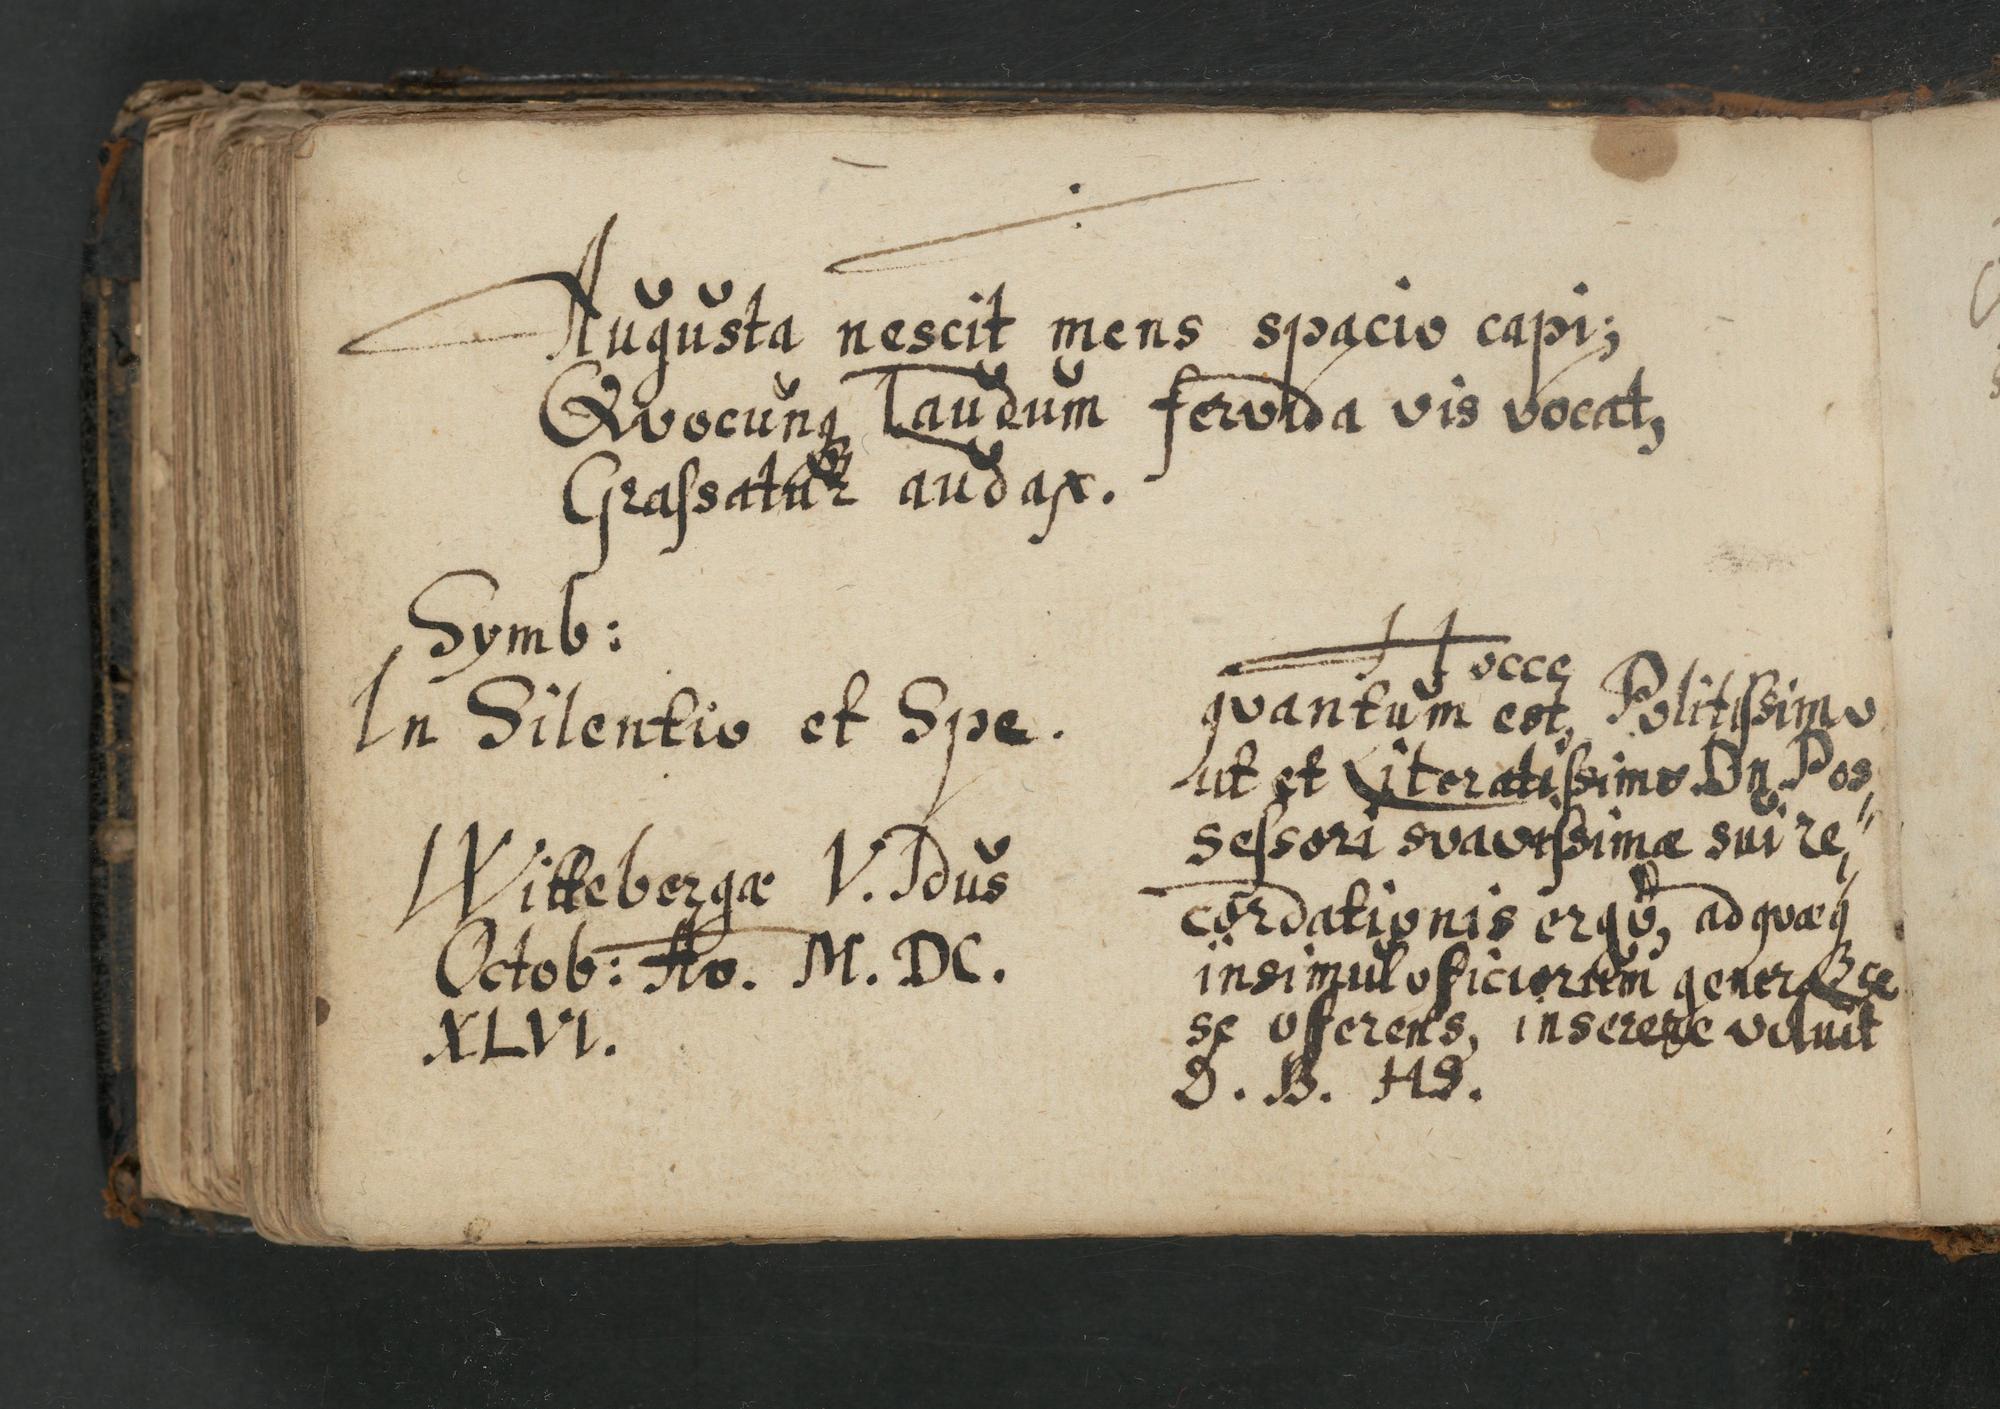 Augusta nescit mens spacio capi;
Qvocunq laudum fervida vis vocat,
Grassatur audax.
Symb:
In Silentio et Spe.
Wittebergæ V. Idus
Octob: Ao. M. DC.
XLVI.
Hocce
quantum est, Politissimo
ut et Literatissimo Dn. Pos
sessori svavissimæ sui re"
cordationis ergo, ad quæq
insimul officiorum genera
se offerens, inserere voluit
D. B. HS.